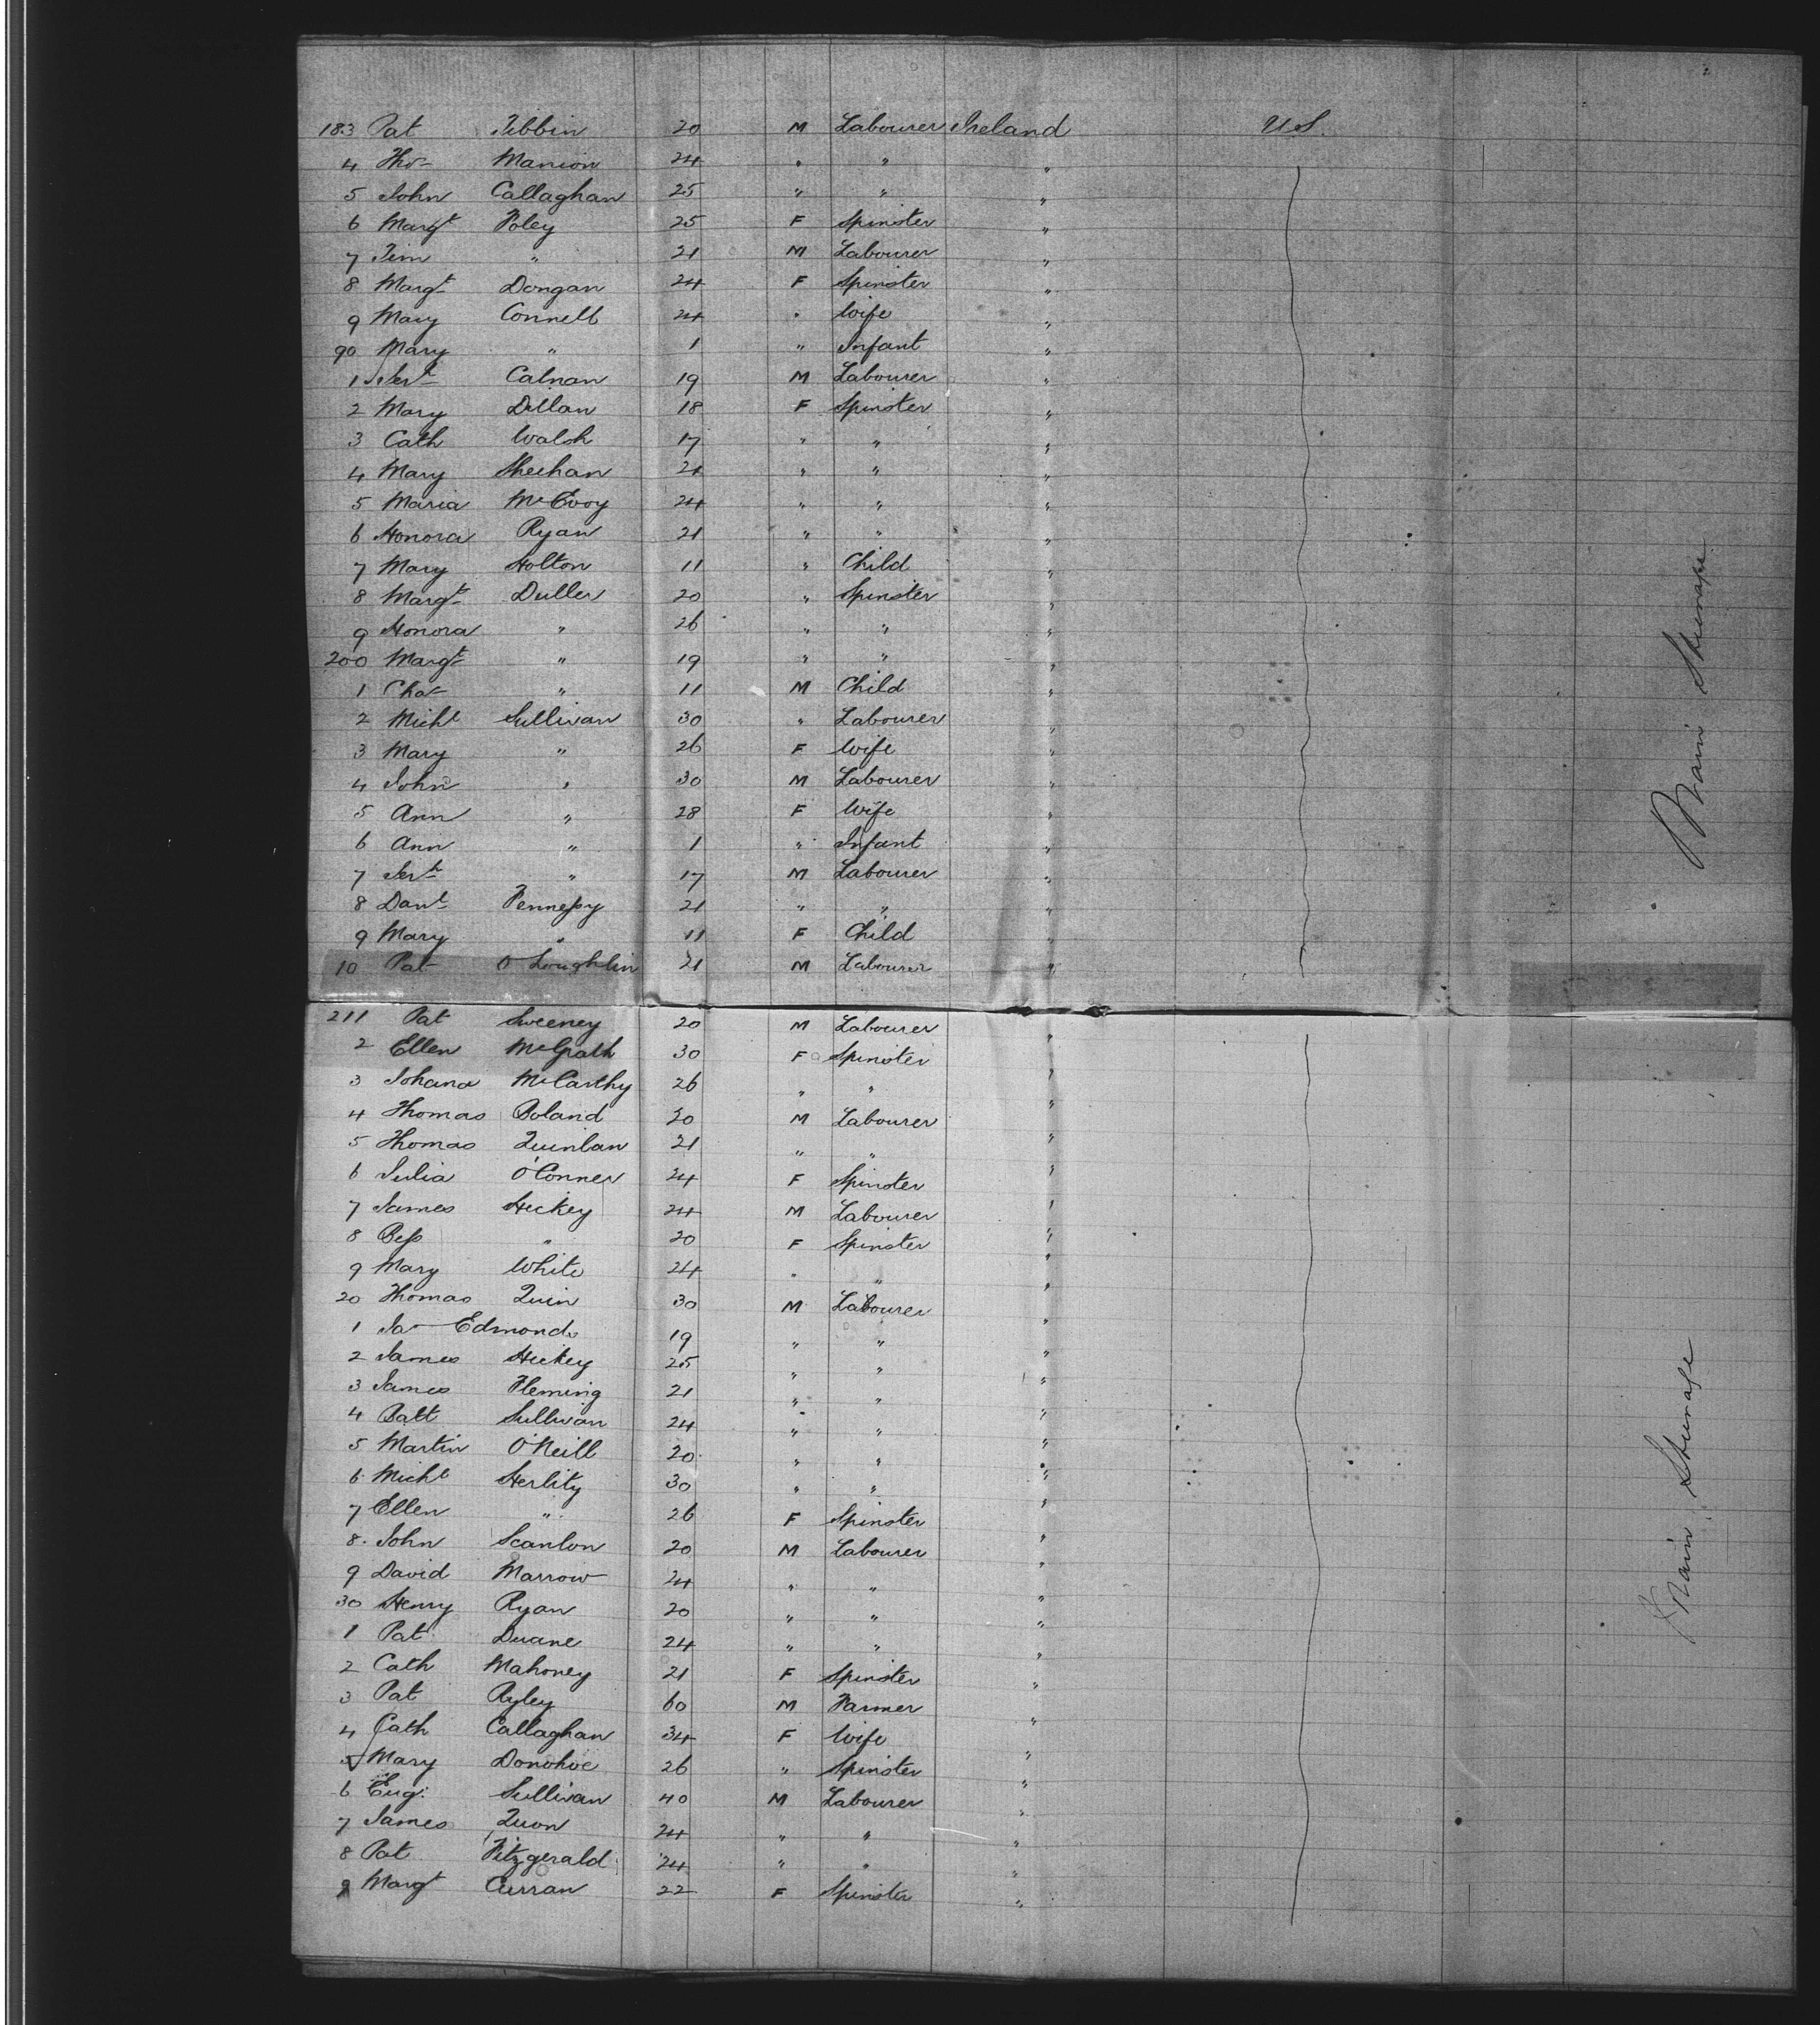 183 Pat Tibbin 20 M Labourer Ireland U.S.
4 Tho- Manion 24 " " "
5 John Callaghan 25 " " "
6 Margt Foley 25 F Spinster "
7 Tim " 21 M Labourer "
8 Margt Dongan 24 F Spinster "
9 Mary Connell 24 " Wife "
90 Mary " 1 " Infant "
1 Jert Calnan 19 M Labourer "
2 Mary Dillan 18 F Spinster "
3 Cath Walsh 17 " " "
4 Mary Sheehan 21 " " "
5 Maria McEvoy 24 " " "
6 Honora Ryan 21 " " "
7 Mary Holton 11 " Child "
8 Margt Duller 20 " Spinster "
9 Honora " 26 " " "
200 Margt " 19 " " "
1 Cha- " 11 M Child "
2 Michl Sullivan 30 " Labourer "
3 Mary " 26 F Wife "
4 John " 30 M Labourer "
5 Ann " 28 F Wife "
6 Ann " 1 " Infant "
7 Jert " 17 M Labourer "
8 Danl Fennessy 21 " " "
9 Mary " 11 F Child "
10 Pat O'Loughlin 21 M Labourer "
Main Steerage
211 Pat Sweeney 20 M Labourer "
2 Ellen McGrath 30 F Spinster "
3 Johana McCarthy 26 " " "
4 Thomas Boland 20 M Labourer "
5 Thomas Quinlan 21 " " "
6 Julia O'Conner 24 F Spinster "
7 James Hickey 24 M Labourer "
8 Bess " 20 F Spinster "
9 Mary White 24 " " "
20 Thomas Quin 30 M Labourer "
1 Ja- Edmonds 19 " " "
2 James Hickey 25 " " "
3 James Fleming 21 " " "
4 Batt Sullivan 24 " " "
5 Martin O'Neill 20 " " "
6 Michl Herlity 30 " " "
7 Ellen " 26 F Spinster "
8 John Scanlon 20 M Labourer "
9 David Marrow 24 " " "
30 Henry Ryan 20 " " "
1 Pat Duane 24 " " "
2 Cath Mahoney 21 F Spinster "
3 Pat Ryley 60 M Farmer "
4 Cath Callaghan 34 F Wife "
5 Mary Donohoe 26 " Spinster "
6 Eug: Sullivan 40 M Labourer "
7 James Quon 24 " " "
8 Pat Fitzgerald 24 " " "
9 Margt Curran 22 F Spinster "
Main Steerage